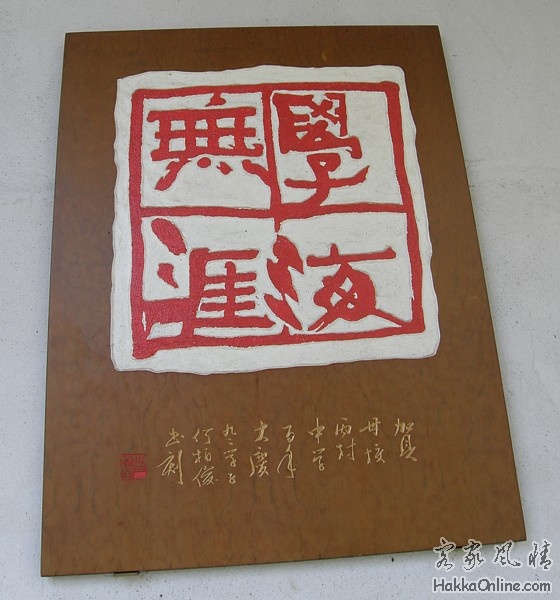 學海
無涯
賀
母校
丙村
中学
百年
大慶
何柏俊
书刻
客家风情
HakkaOnline.com